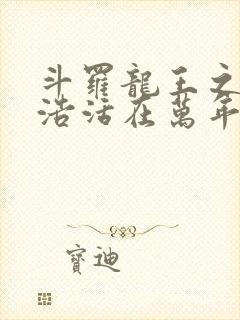 斗羅龍王之
浩活在萬年
寶迪